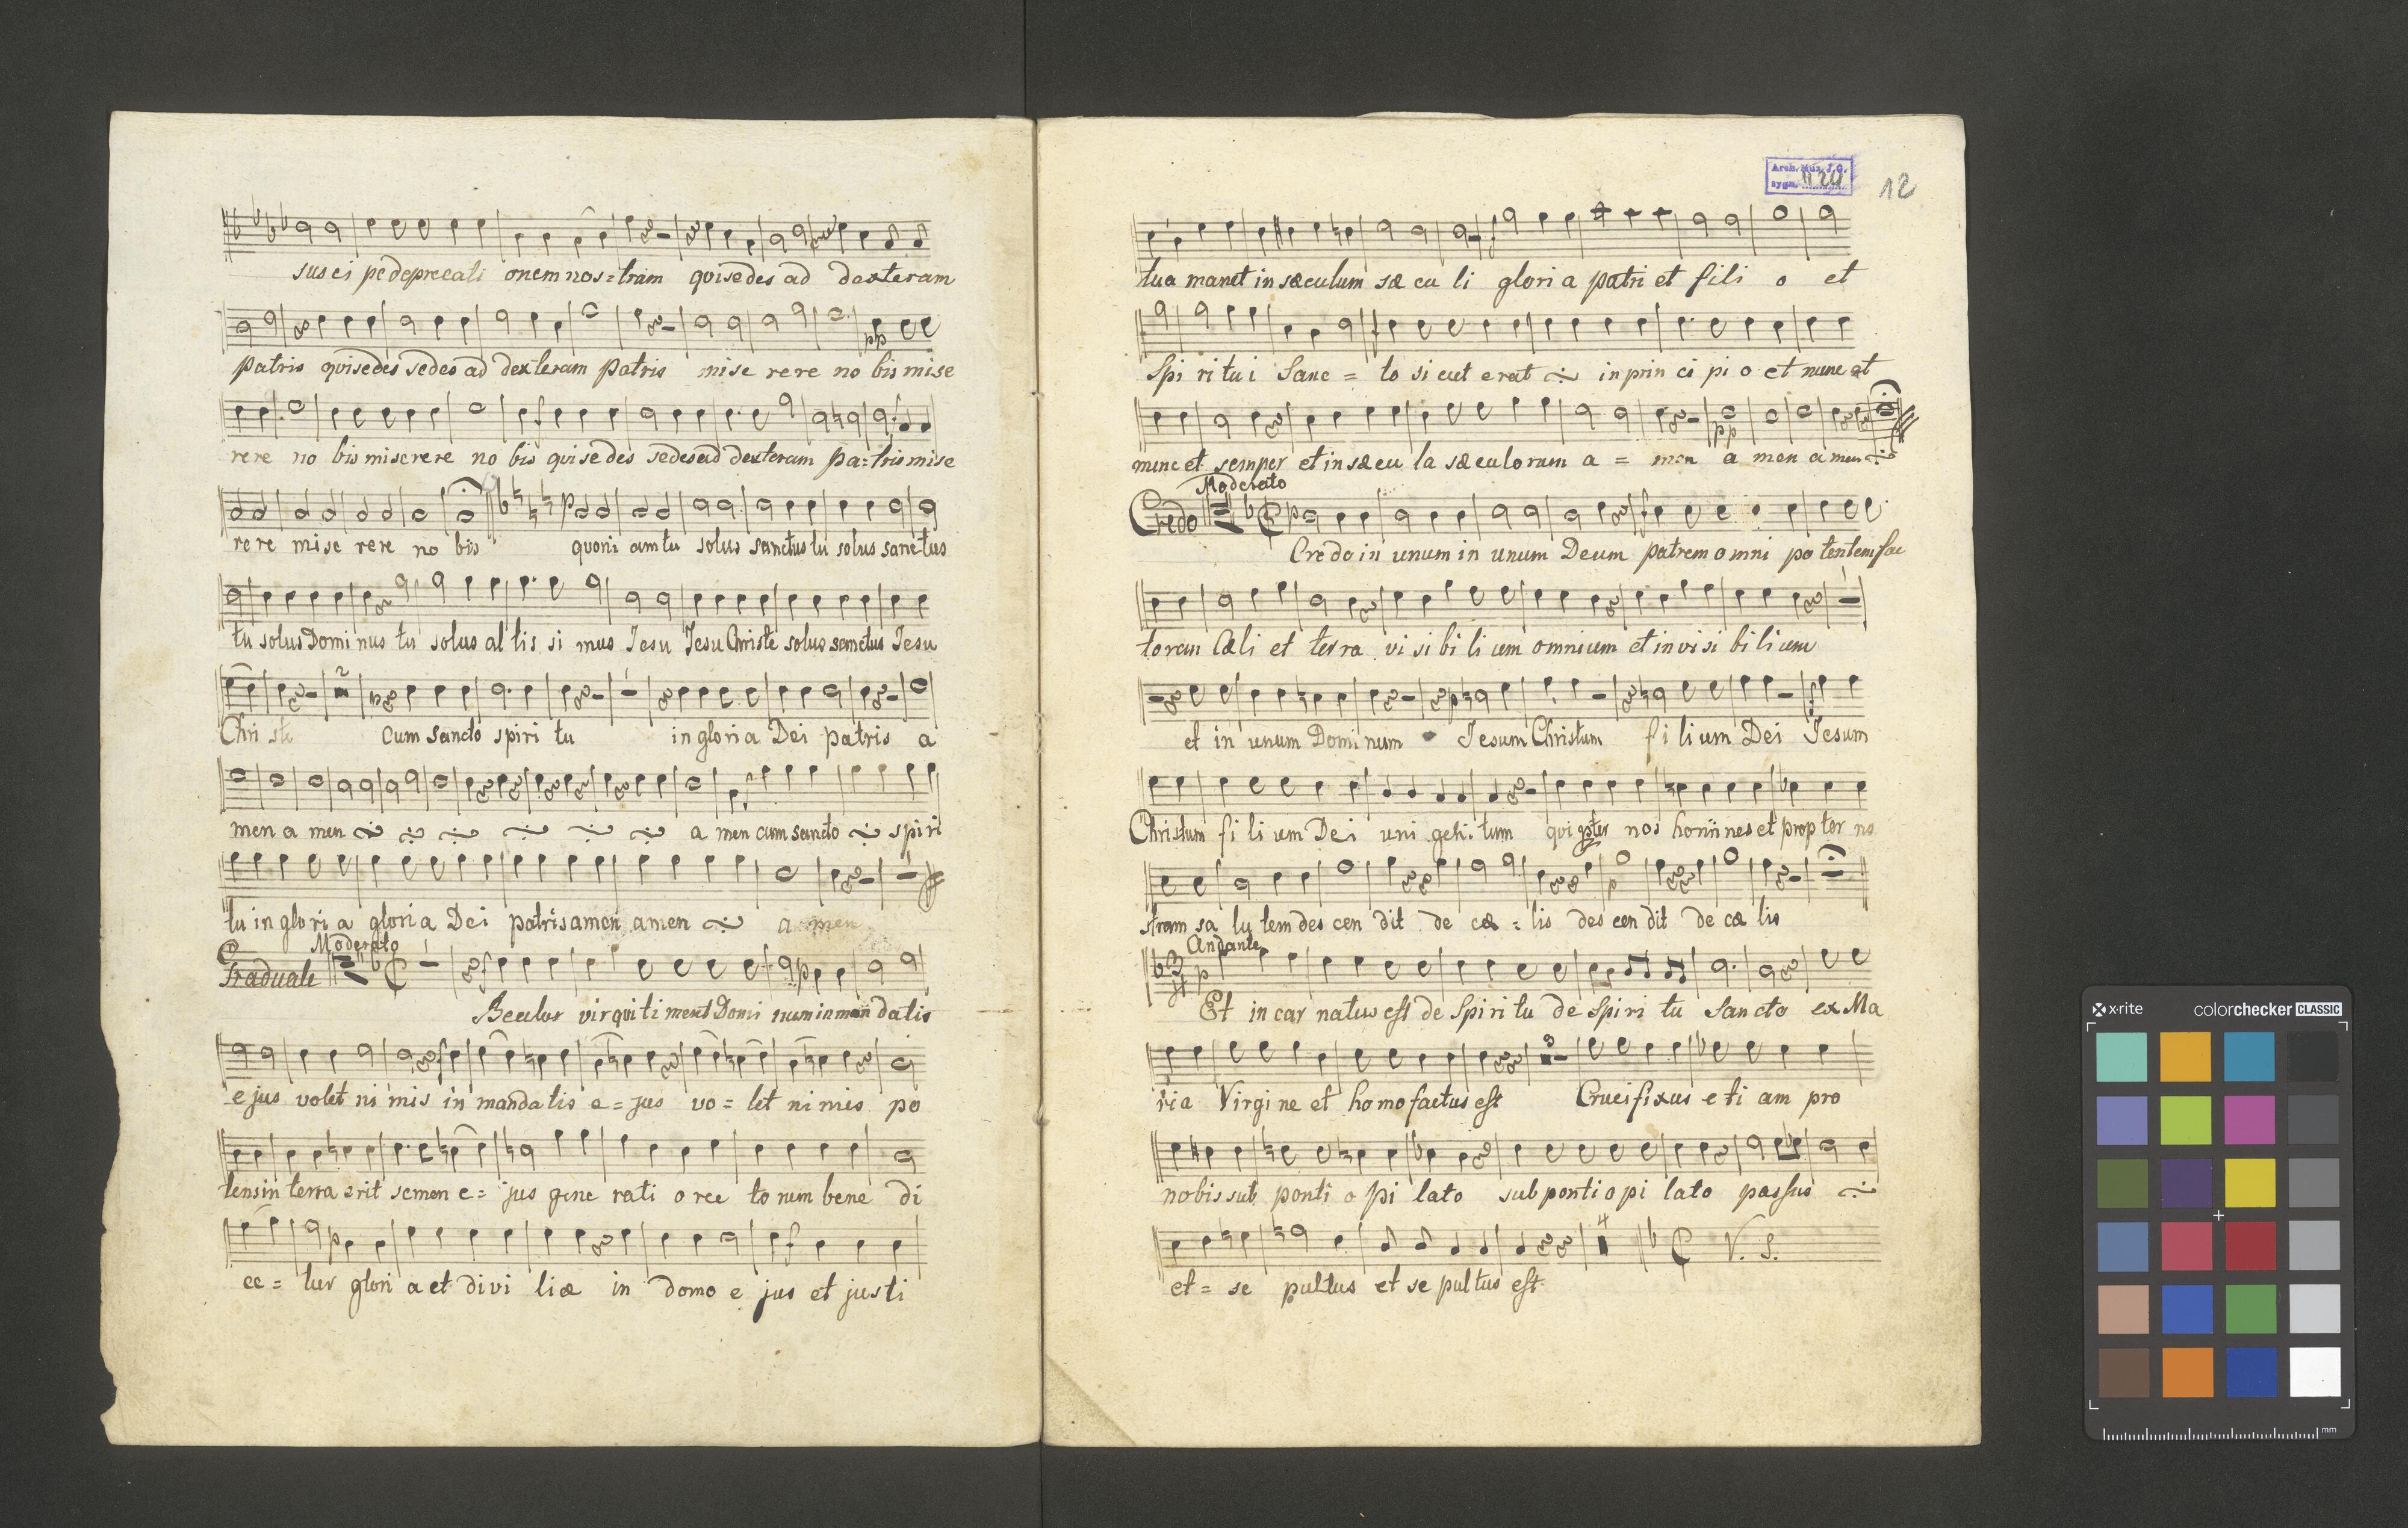 sus ci pe deprecati onem nos=tram qui sedes ad dexteram
patris qui sedes sedes ad dexteram patris mise rere no bis mise
rere no bis miserere no bis qui sedes sedes ad dexteram pa=tris mise
rere mise rere no bis quoni am tu solus sanctus tu solus sanctus
tu solus Domi nus tu solus al tis si mus Jesu Jesu Christe solus sanctus Jesu
2
Chri ste cum sancto spiri tu in gloria Dei patris a
men a men a men cum sancto spiri
tu in glori a glori a Dei patris amen amen a men
Graduale Moderato
Beatus vir qui ti ment Domi num in man datis
e jus volet ni mis in mandatis e=jus vo=let nimis po
tens in terra erit semen e=jus gene rati o rec to rum bene di
ce=tur glori a et divi tiæ in domo e jus et justi
Arch. Muz. J.G.
sygn.
12
tua manet in sæculum sæ cu li glori a patri et fili o et
Spi ri tu i Sanc=to si cut erat in prin ci pi o et nunc et
pp
nunc et semper et in sæcu la sæculorum a=men a men a men
Credo Moderato
Credo in unum in unum Deum patrem omni po tentem fac
torem Cæli et terra vi si bi li um omnium et invi si bi li um
et in unum Domi num Jesum Christum fi li um Dei Jesum
Christum fi li um Dei uni geni tum qui pter nos homines et propter no
stram sa lu tem des cen dit de cæ=lis des cen dit de cæ lis
Andante
3
4
Et in car natus est de Spi ri tu de spi ri tu Sancto ex Ma
3
ria Virgi ne et homo factus est Crucifixus e ti am pro
nobis sub ponti o pi lato sub ponti o pi lato passus
4
V. S.
et=se pultus et se pultus est
x-rite colorchecker CLASSIC
mm